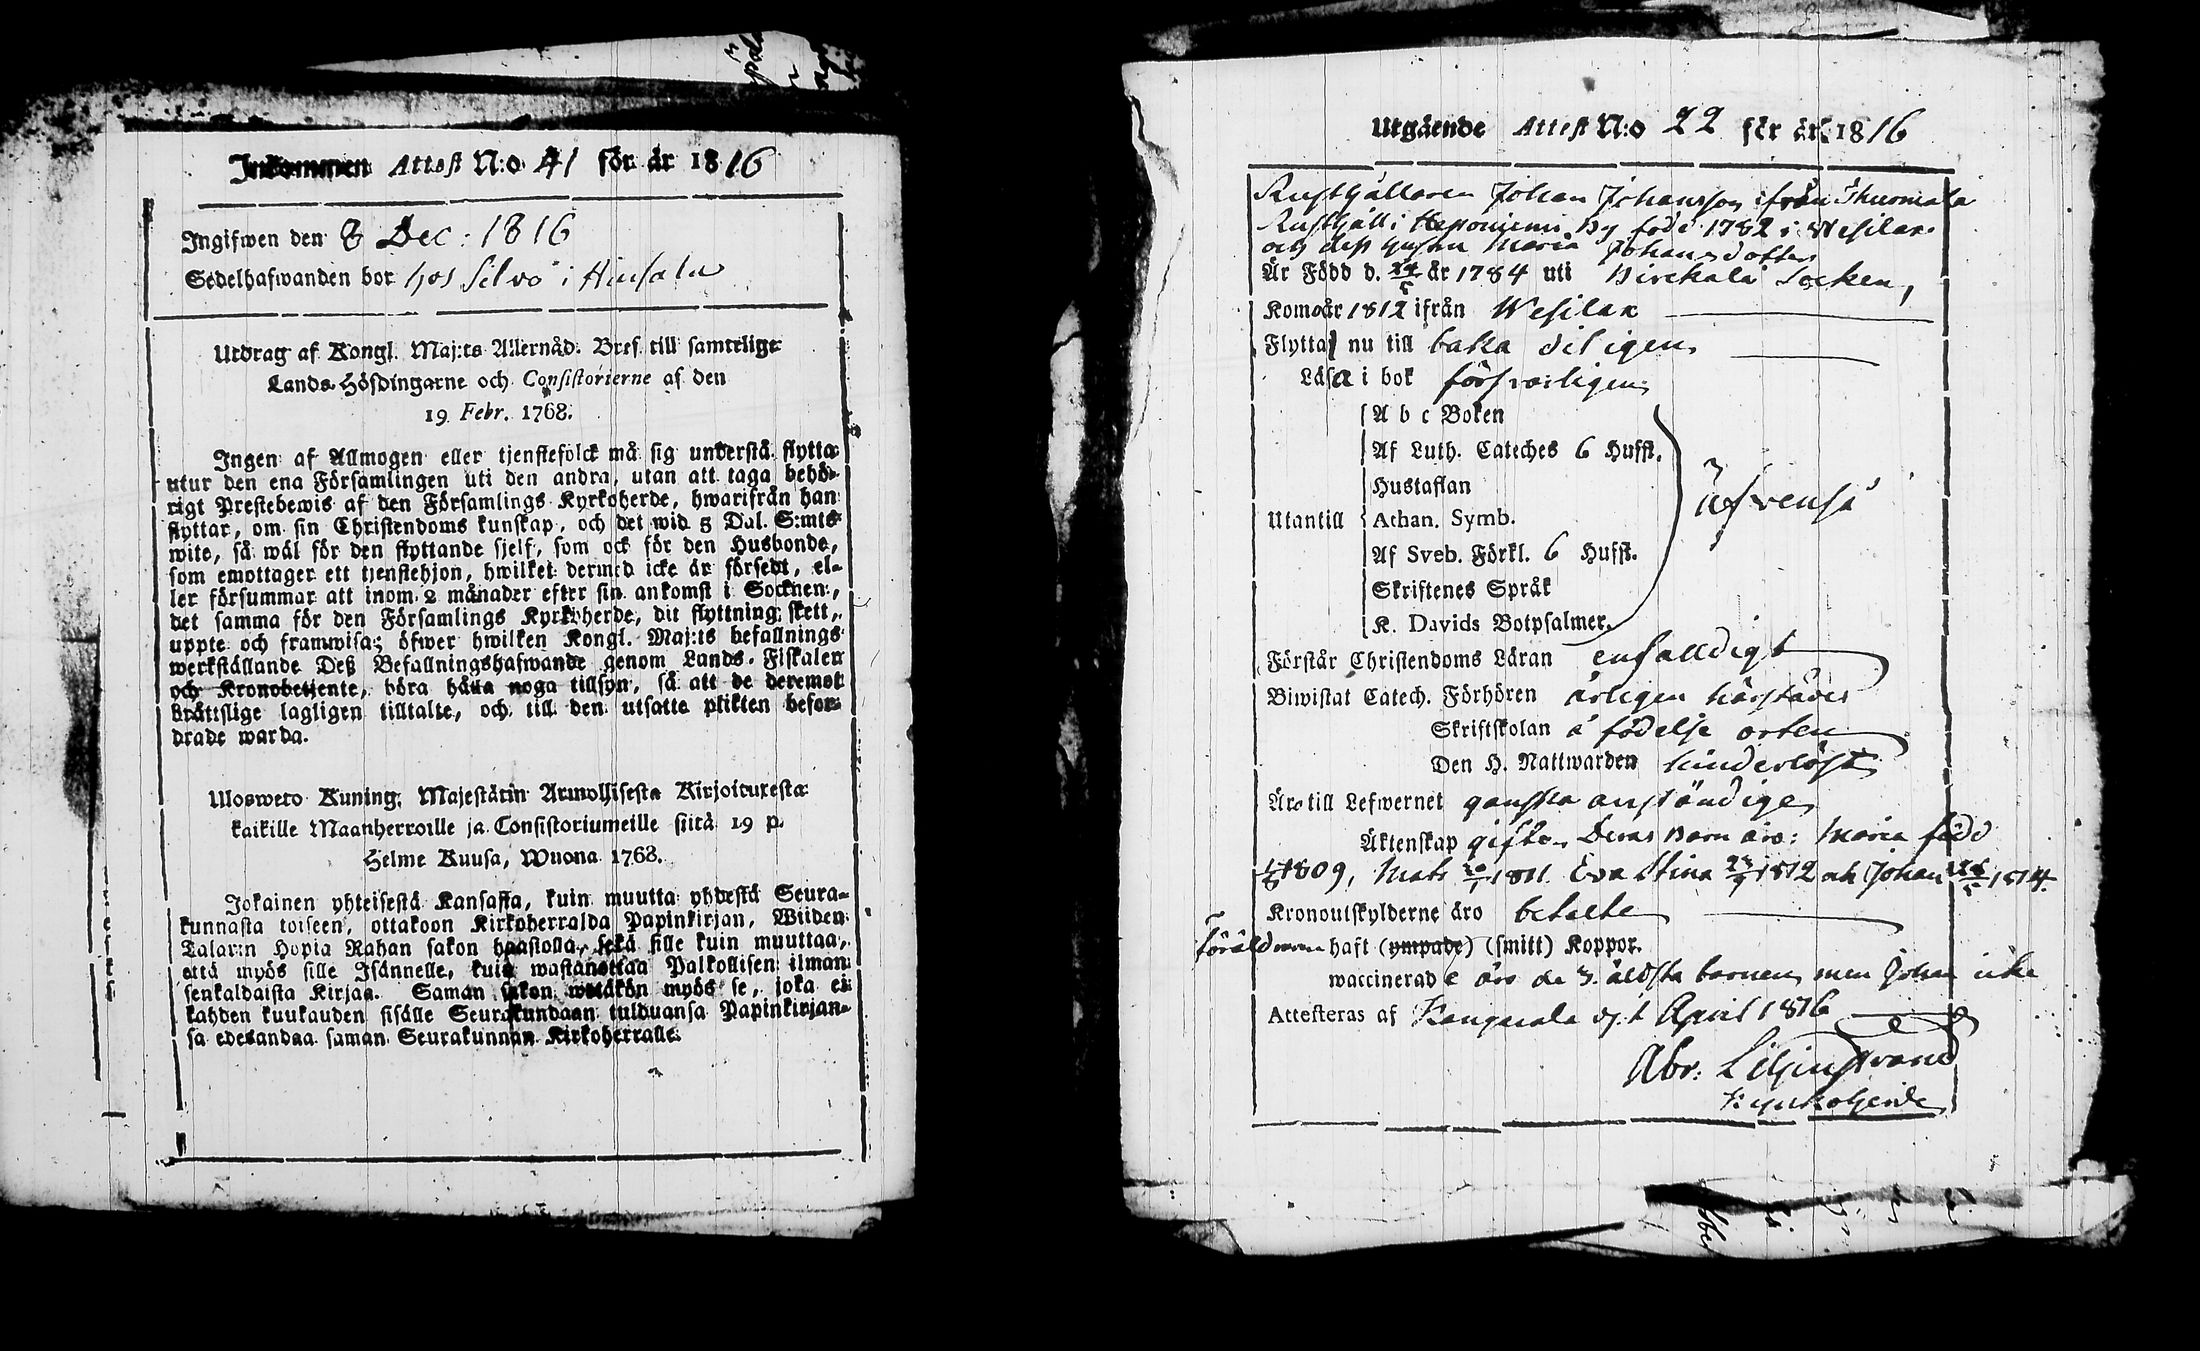 Inkommen Attest N:o 41 för år 1816
Ingifwen den 8 Dec: 1816
Sedelhafwanden bor hos Selvo i Hinsala
Utdrag af Kongl. Maj:ts Allernåd. Bref till samtelige
Lands-Höfdingarne och Consistorierne af den
19 Febr. 1768.
Ingen af Allmogen eller tjenstefolck må sig understå flytta
utur den ena Församlingen uti den andra, utan att taga behö-
rigt Prestebewis af den Församlings Kyrkoherde, hwarifrån han
flyttar, om sin Christendoms kunskap, och det wid 5 Dal. S:mts
wite, så wäl för den flyttande sjelf, som ock för den Husbonde,
som emottager ett tjenstehjon, hwilket dermed icke är försedt, el-
ler försummar att inom 2 månader efter sin ankomst i Socknen,
det samma för den Församlings Kyrkoherde, dit flyttning skett,
uppte och framwisa; öfwer hwilken Kongl. Maj:ts befallnings
werkställande Deß Befallningshafwande genom Lands-Fiskaler
och Kronobetjente, böra hålla noga tillsyn, så att de deremot
brättslige lagligen tilltalte, och till den utsatte plikten befor-
drade warda.
Ulosweto Kuning. Majestätin Armollisesta Kirjoituxesta
kaikille Maanherroille ja Consistoriumeille siitä 19 p.
Helme Kuusa, Wuona 1768.
Jokainen yhteisestä Kansasta, kuin muutta yhdestä Seura-
kunnasta toiseen, ottakoon Kirkoherralda Papinkirjan, Wiiden
Talarin Hopia Rahan sakon haastolla, sekä sille kuin muuttaa,
että myös sille Isännelle, kuin wastanottaa Palkollisen ilman
senkaldaista Kirjaa. Saman sakon wetäkön myös se, joka ei
kahden kuukauden sisälle Seurakundaan tulduansa Papinkirjan-
sa edesandaa saman Seurakunnan Kirkoherralle.
Utgående Attest N:o 22 för år 1816
Rusthållaren Johan Johansson ifrån Ihuomala
Rusthåll i Heponiemi By född 1782 i Wesilax
och dess hustru Maria Johansdotter
Är Född d. 24/5 år 1784 uti Birckala Socken,
Komo år 1812 ifrån Wesilax
Flytta nu till baka dit igen
Läsa i bok försvarligen
A b c Boken
Af Luth. Cateches 6 Hufst.
Hustaflan
Utantill Athan. Symb. äfvenså
Af Sveb. Förkl. 6 Hufst.
Skriftenes Språk
K. Davids Botpsalmer.
Förstår Christendoms Läran enfalldigt
Biwistat Catech. Förhören årligen härstädes
Skriftskolan å födelse orten
Den H. Nattwarden hinderlöst
Äro till Lefwernet ganska anständige
Äktenskap gifte. Deras Barn äro: Maria född
1809, Mats 1811 Eva Stina 1812 och Johan 1814.
Kronoutskylderne äro betalte
Föräldrarne haft (ympade) (smitt) Koppor.
waccinerade äro de 3. äldsta barnen men Johan icke
Attesteras af Kangasala d. 1 April 1816
Abr: Liljenstrand
Kyrkoherde